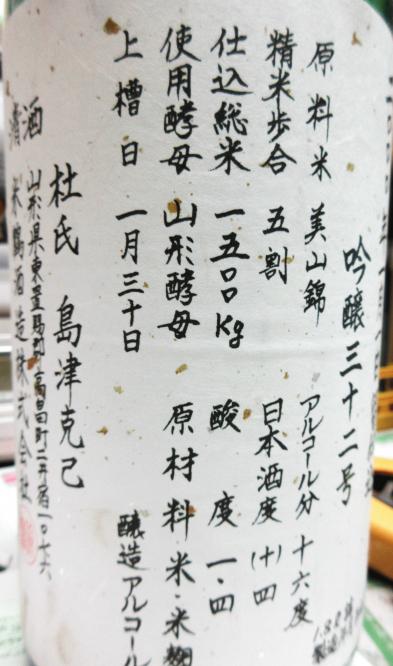 吟醸三十二号
原料米 美山錦 アルコール分 十六度
精米歩合 五割 日本酒度 (十)四
仕込総米 一五〇〇Kg 酸度 一.四
使用酵母 山形酵母 原材料 米・米麹
醸造アルコール
上槽日 一月三十日
杜氏 島津克己
山形県東置賜郡高畠町二井宿一〇七六
米鶴酒造株式会社
清酒